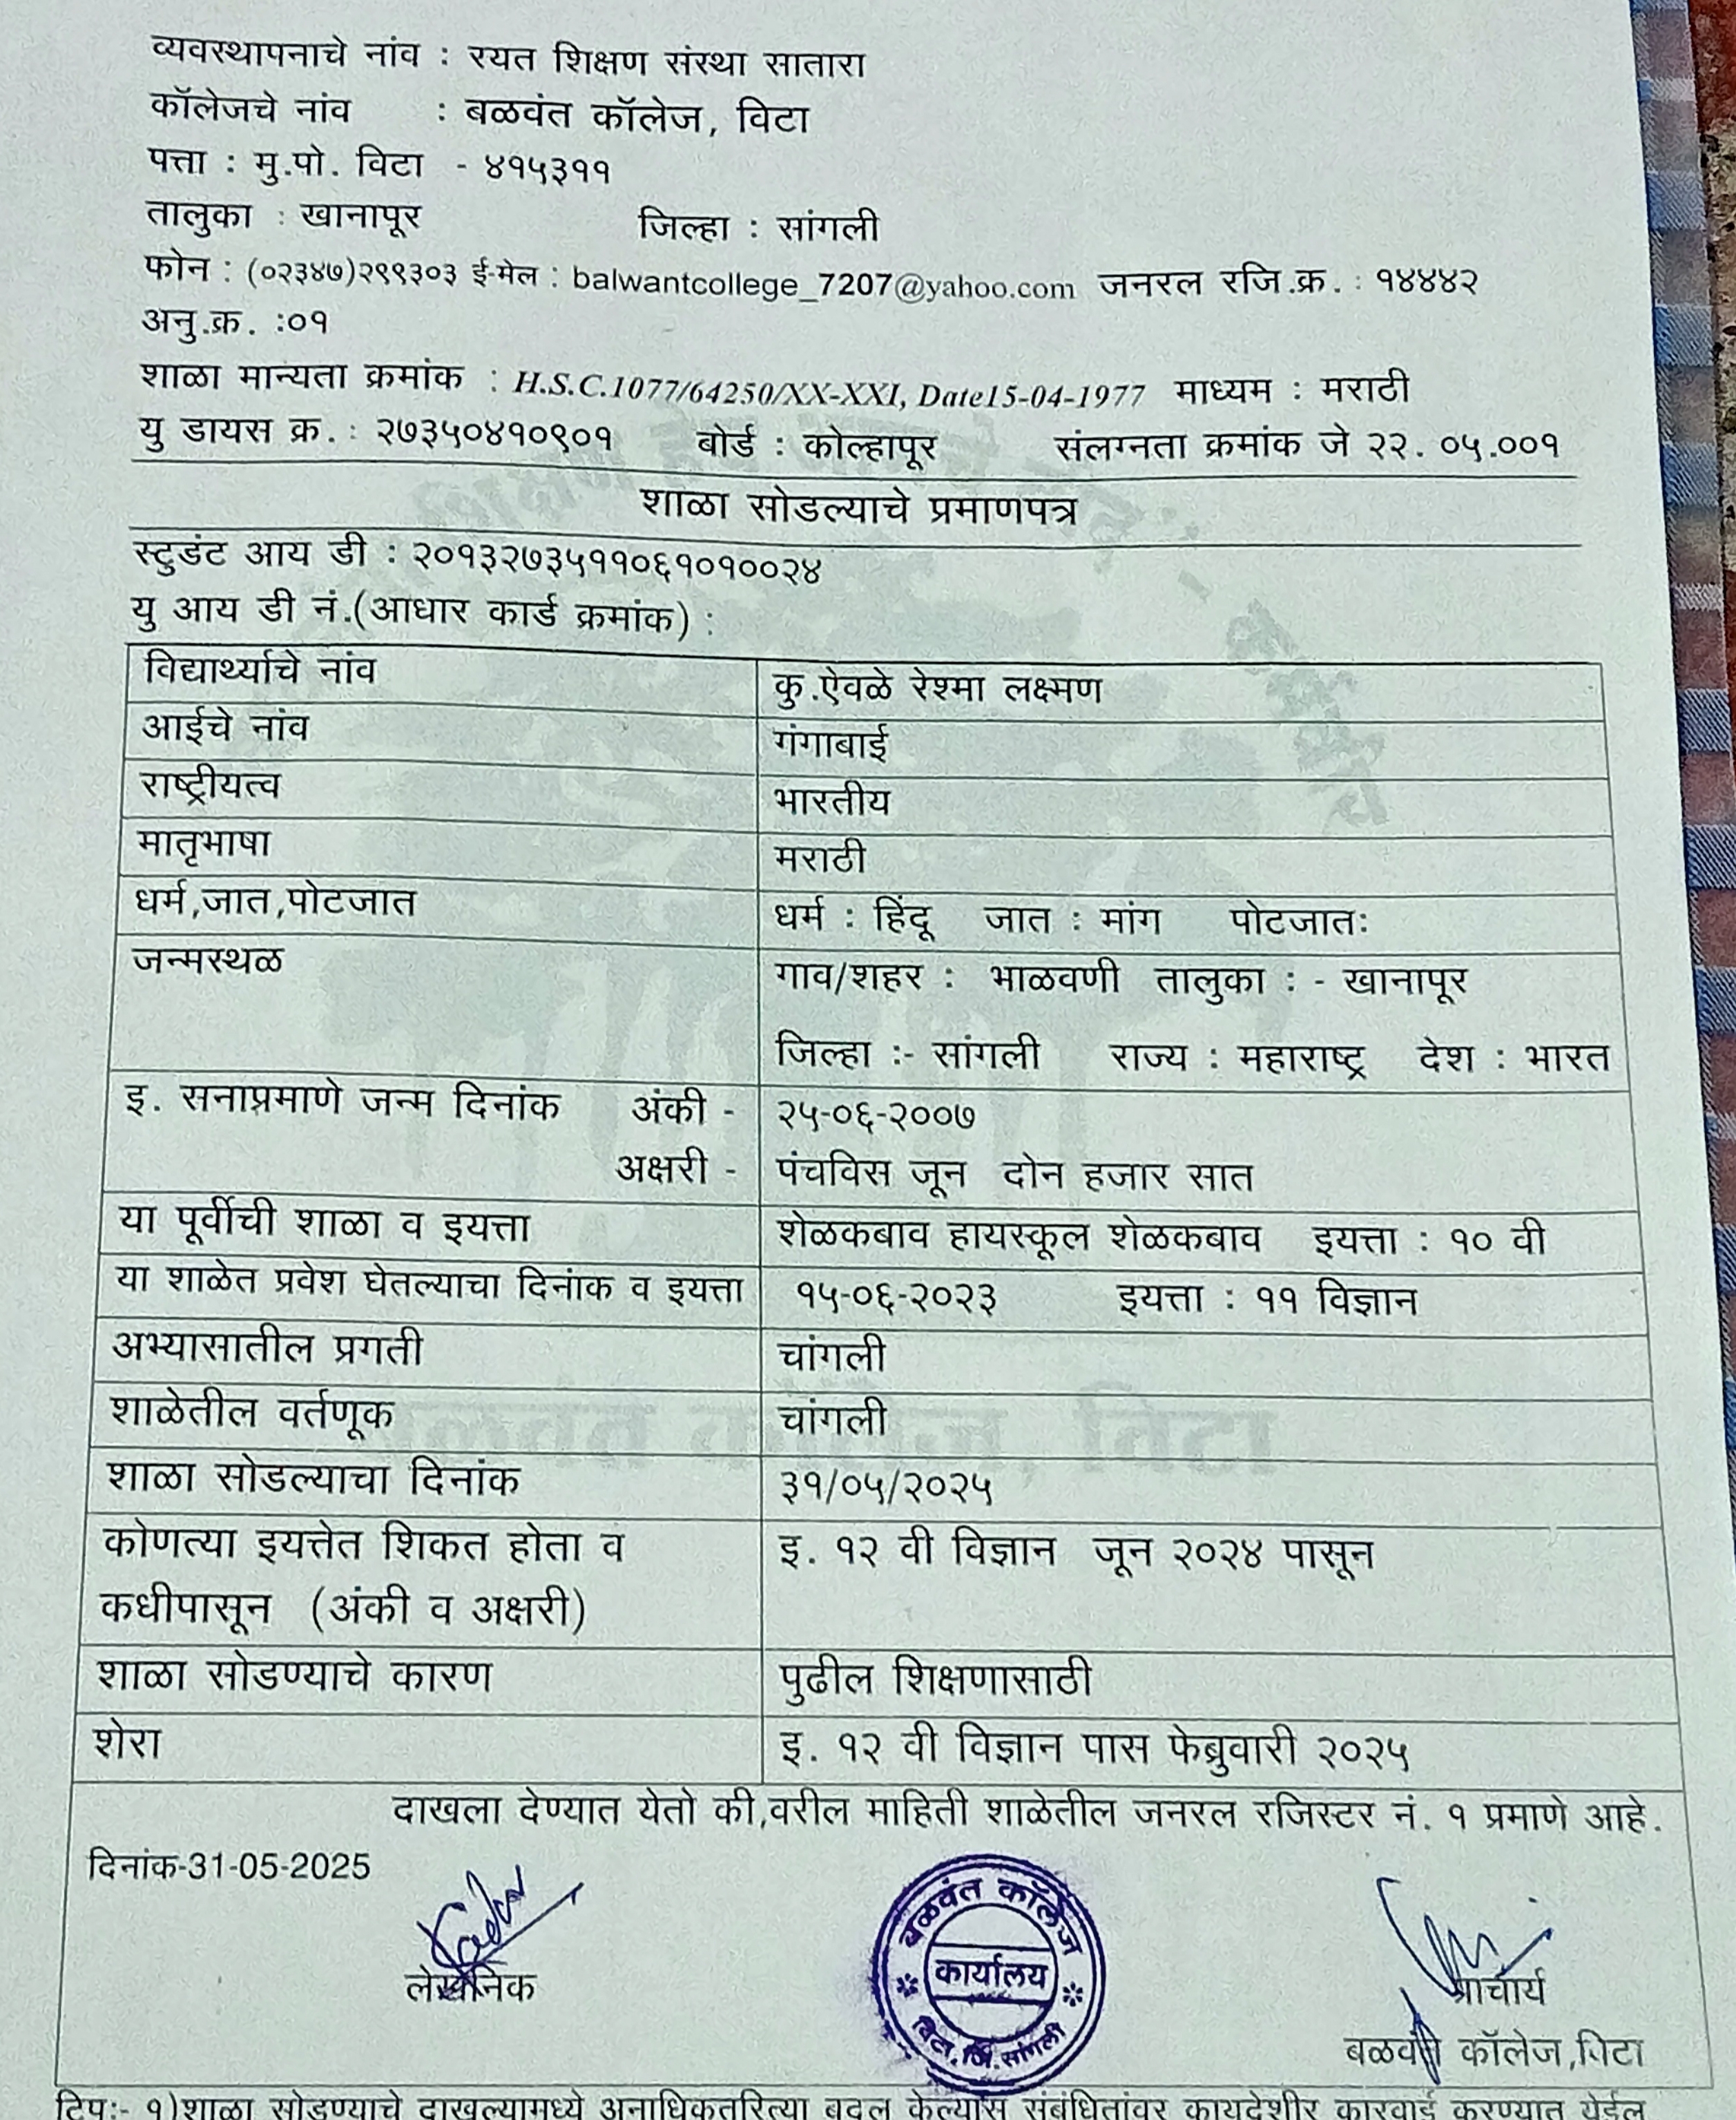 व्यवस्थापनाचे नांव : रयत शिक्षण संस्था सातारा
कॉलेजचे नांव : बळवंत कॉलेज, विटा
पत्ता : मु.पो. विटा - ४१५३११
तालुका : खानापूर जिल्हा : सांगली
फोन : (०२३४७)२९९३०३ ई-मेल : balwantcollege_7207@yahoo.com जनरल रजि.क्र. : १४४४२
अनु.क्र. :०१
शाळा मान्यता क्रमांक : H.S.C.1077/64250/XX-XXI, Date15-04-1977 माध्यम : मराठी
यु डायस क्र. : २७३५०४१०९०१ बोर्ड : कोल्हापूर संलग्नता क्रमांक जे २२. ०५.००१
शाळा सोडल्याचे प्रमाणपत्र
स्टुडंट आय डी : २०१३२७३५११०६१०१००२४
यु आय डी नं.(आधार कार्ड क्रमांक) :
विद्यार्थ्याचे नांव कु.ऐवळे रेश्मा लक्ष्मण
आईचे नांव गंगाबाई
राष्ट्रीयत्व भारतीय
मातृभाषा मराठी
धर्म,जात,पोटजात धर्म : हिंदू जात : मांग पोटजातः
जन्मस्थळ गाव/शहर : भाळवणी तालुका : - खानापूर
जिल्हा :- सांगली राज्य : महाराष्ट्र देश : भारत
इ. सनाप्रमाणे जन्म दिनांक अंकी - २५-०६-२००७
अक्षरी - पंचविस जून दोन हजार सात
या पूर्वीची शाळा व इयत्ता शेळकबाव हायस्कूल शेळकबाव इयत्ता : १० वी
या शाळेत प्रवेश घेतल्याचा दिनांक व इयत्ता १५-०६-२०२३ इयत्ता : ११ विज्ञान
अभ्यासातील प्रगती चांगली
शाळेतील वर्तणूक चांगली
शाळा सोडल्याचा दिनांक ३१/०५/२०२५
कोणत्या इयत्तेत शिकत होता व इ. १२ वी विज्ञान जून २०२४ पासून
कधीपासून (अंकी व अक्षरी)
शाळा सोडण्याचे कारण पुढील शिक्षणासाठी
शेरा इ. १२ वी विज्ञान पास फेब्रुवारी २०२५
दाखला देण्यात येतो की,वरील माहिती शाळेतील जनरल रजिस्टर नं. १ प्रमाणे आहे.
दिनांक-31-05-2025
बळवंत कॉलेज
कार्यालय
विटा, जि. सांगली
लेखनिक प्राचार्य
बळवंत कॉलेज,विटा
टिप:- १)शाळा सोडण्याचे दाखल्यामध्ये अनाधिकृतरित्या बदल केल्यास संबंधितांवर कायदेशीर कारवाई करण्यात येईल